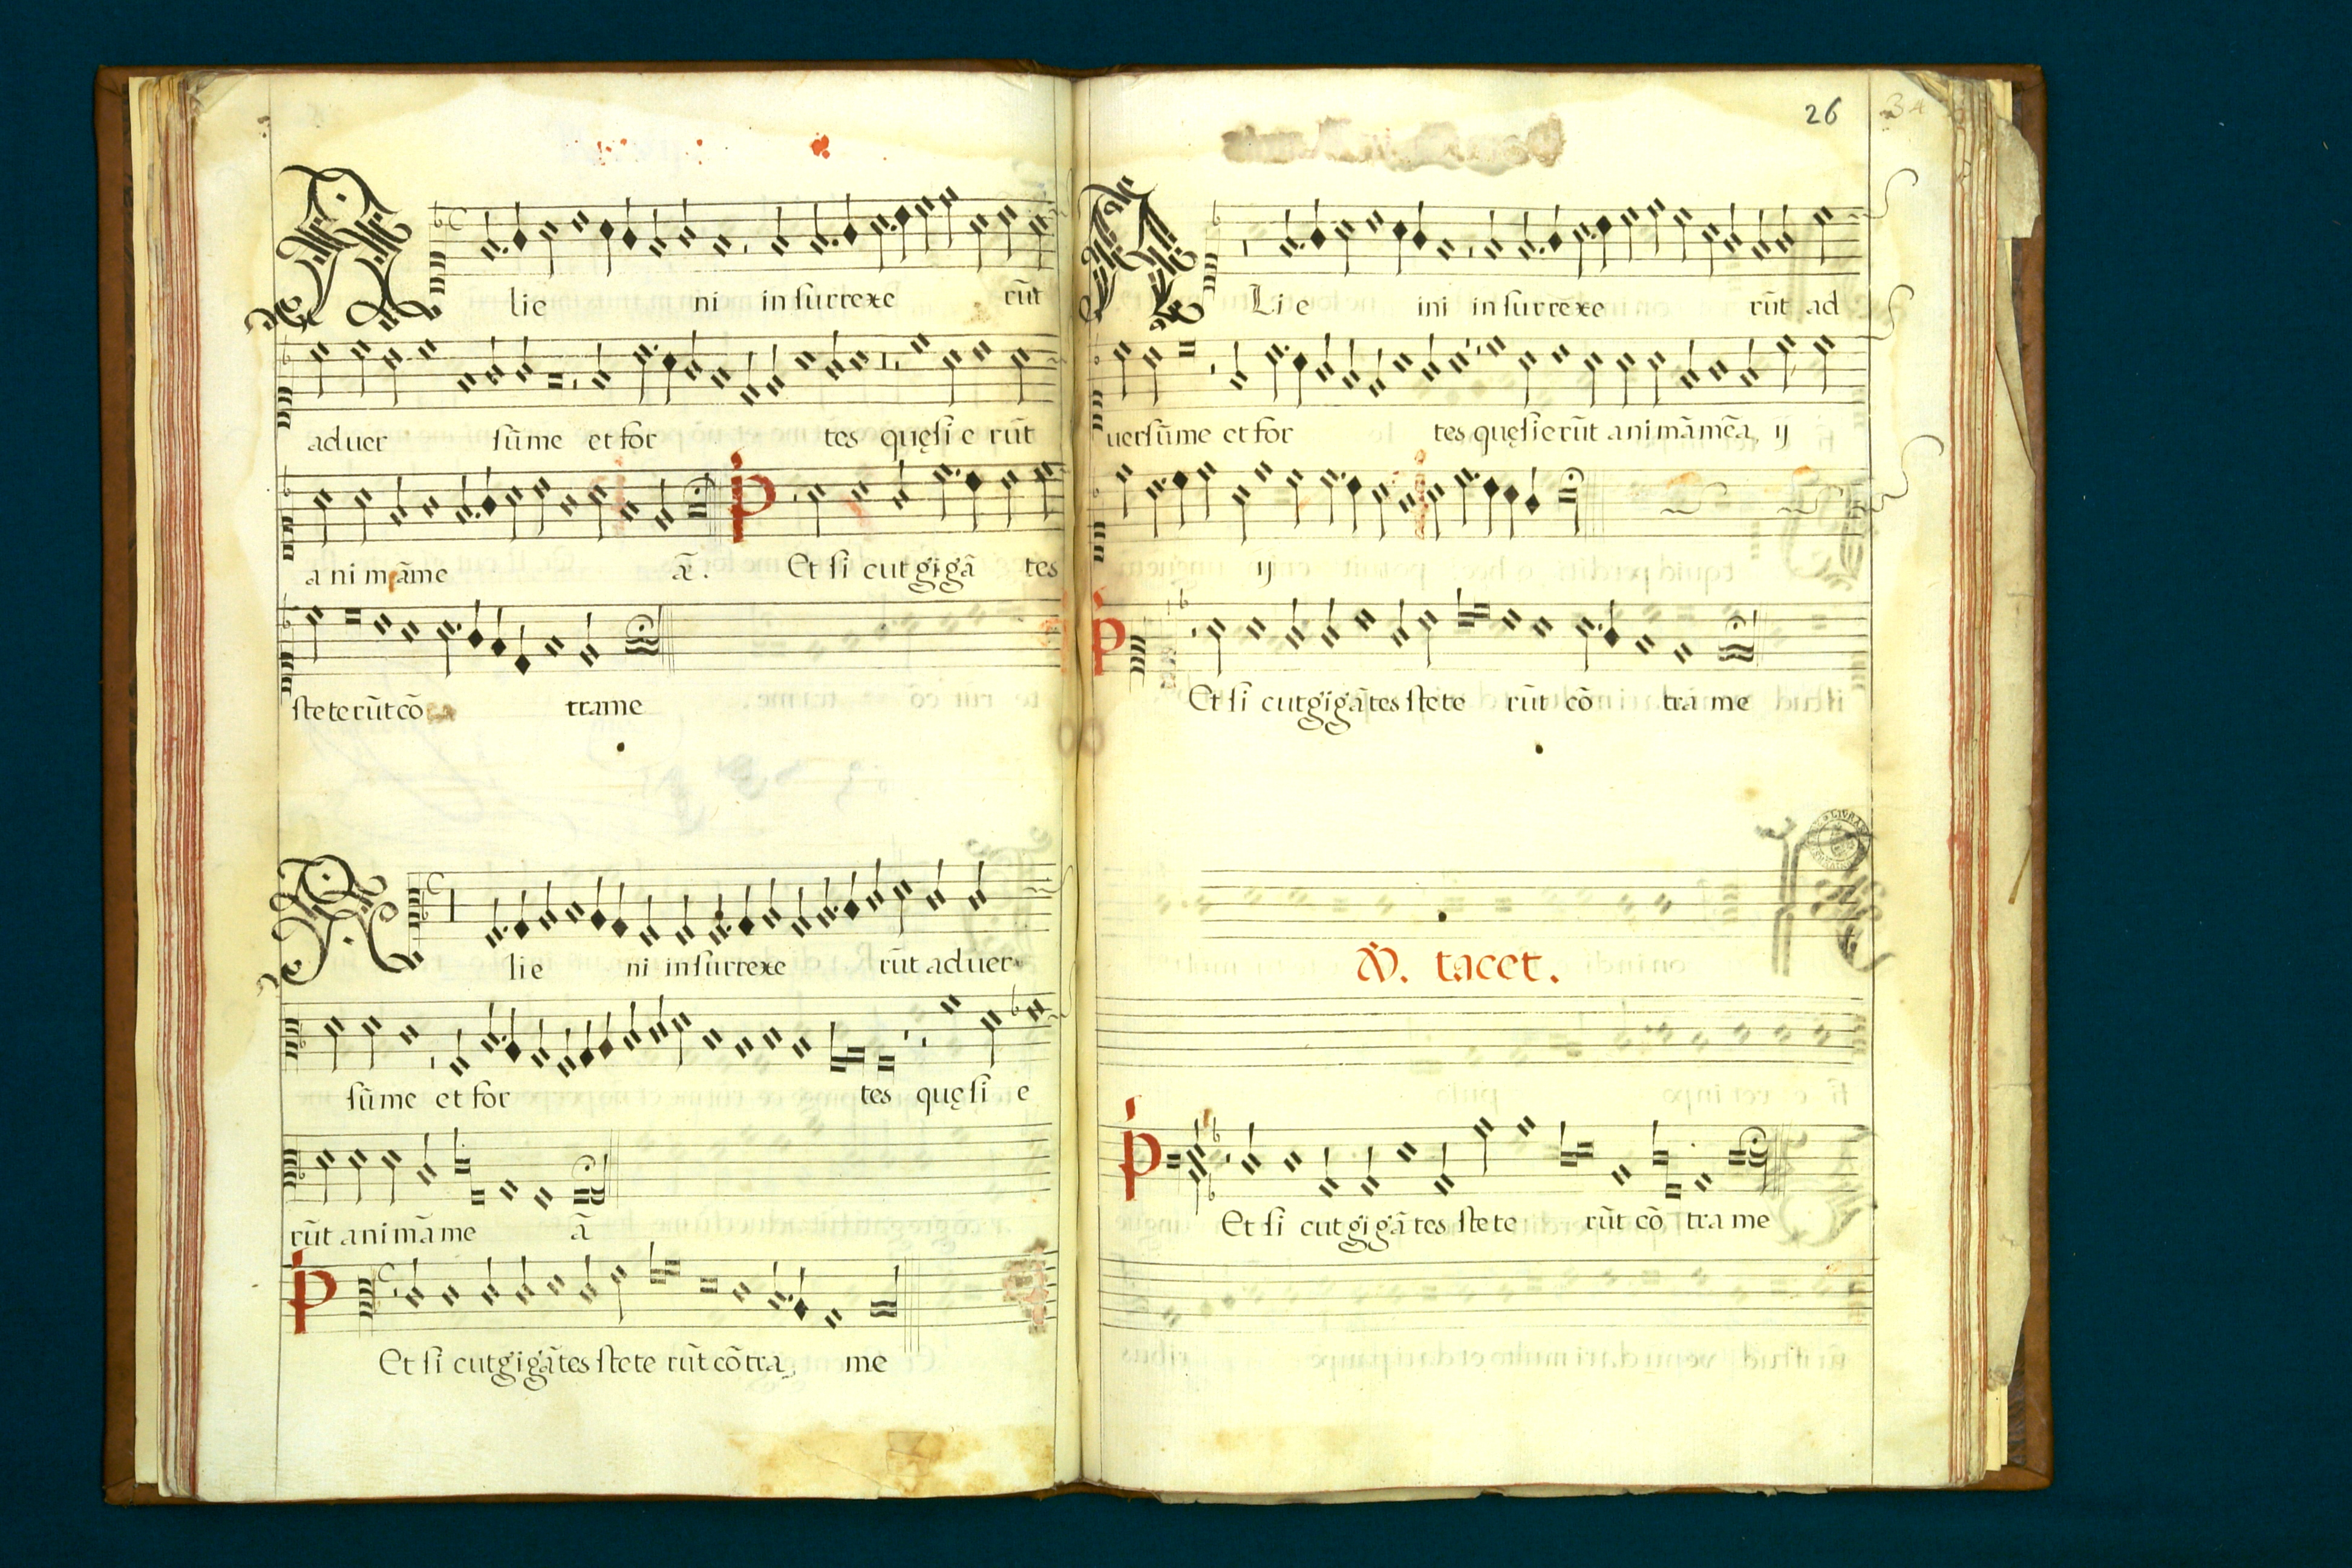 A lie ni in surrexe rūt
aduer sū me et for tes quęsi e rūt
a ni mā me ā. p Et si cut gi gā tes
stete rūt cō tra me
A lie ni in surrexe rūt ad uer
sū me et for tes quę si e
rūt a ni mā me ā
p Et si cut gi gā tes ste te rūt cō tra me
26
A Li e ini in surrexe rūt ad
uersū me et for tes quęsierūt a ni mā mēa, ij
ij
p Et si cut gi gā tes ste te rūt cō tra me
tacet.
p Et si cut gi gā tes ste te rūt cō tra me